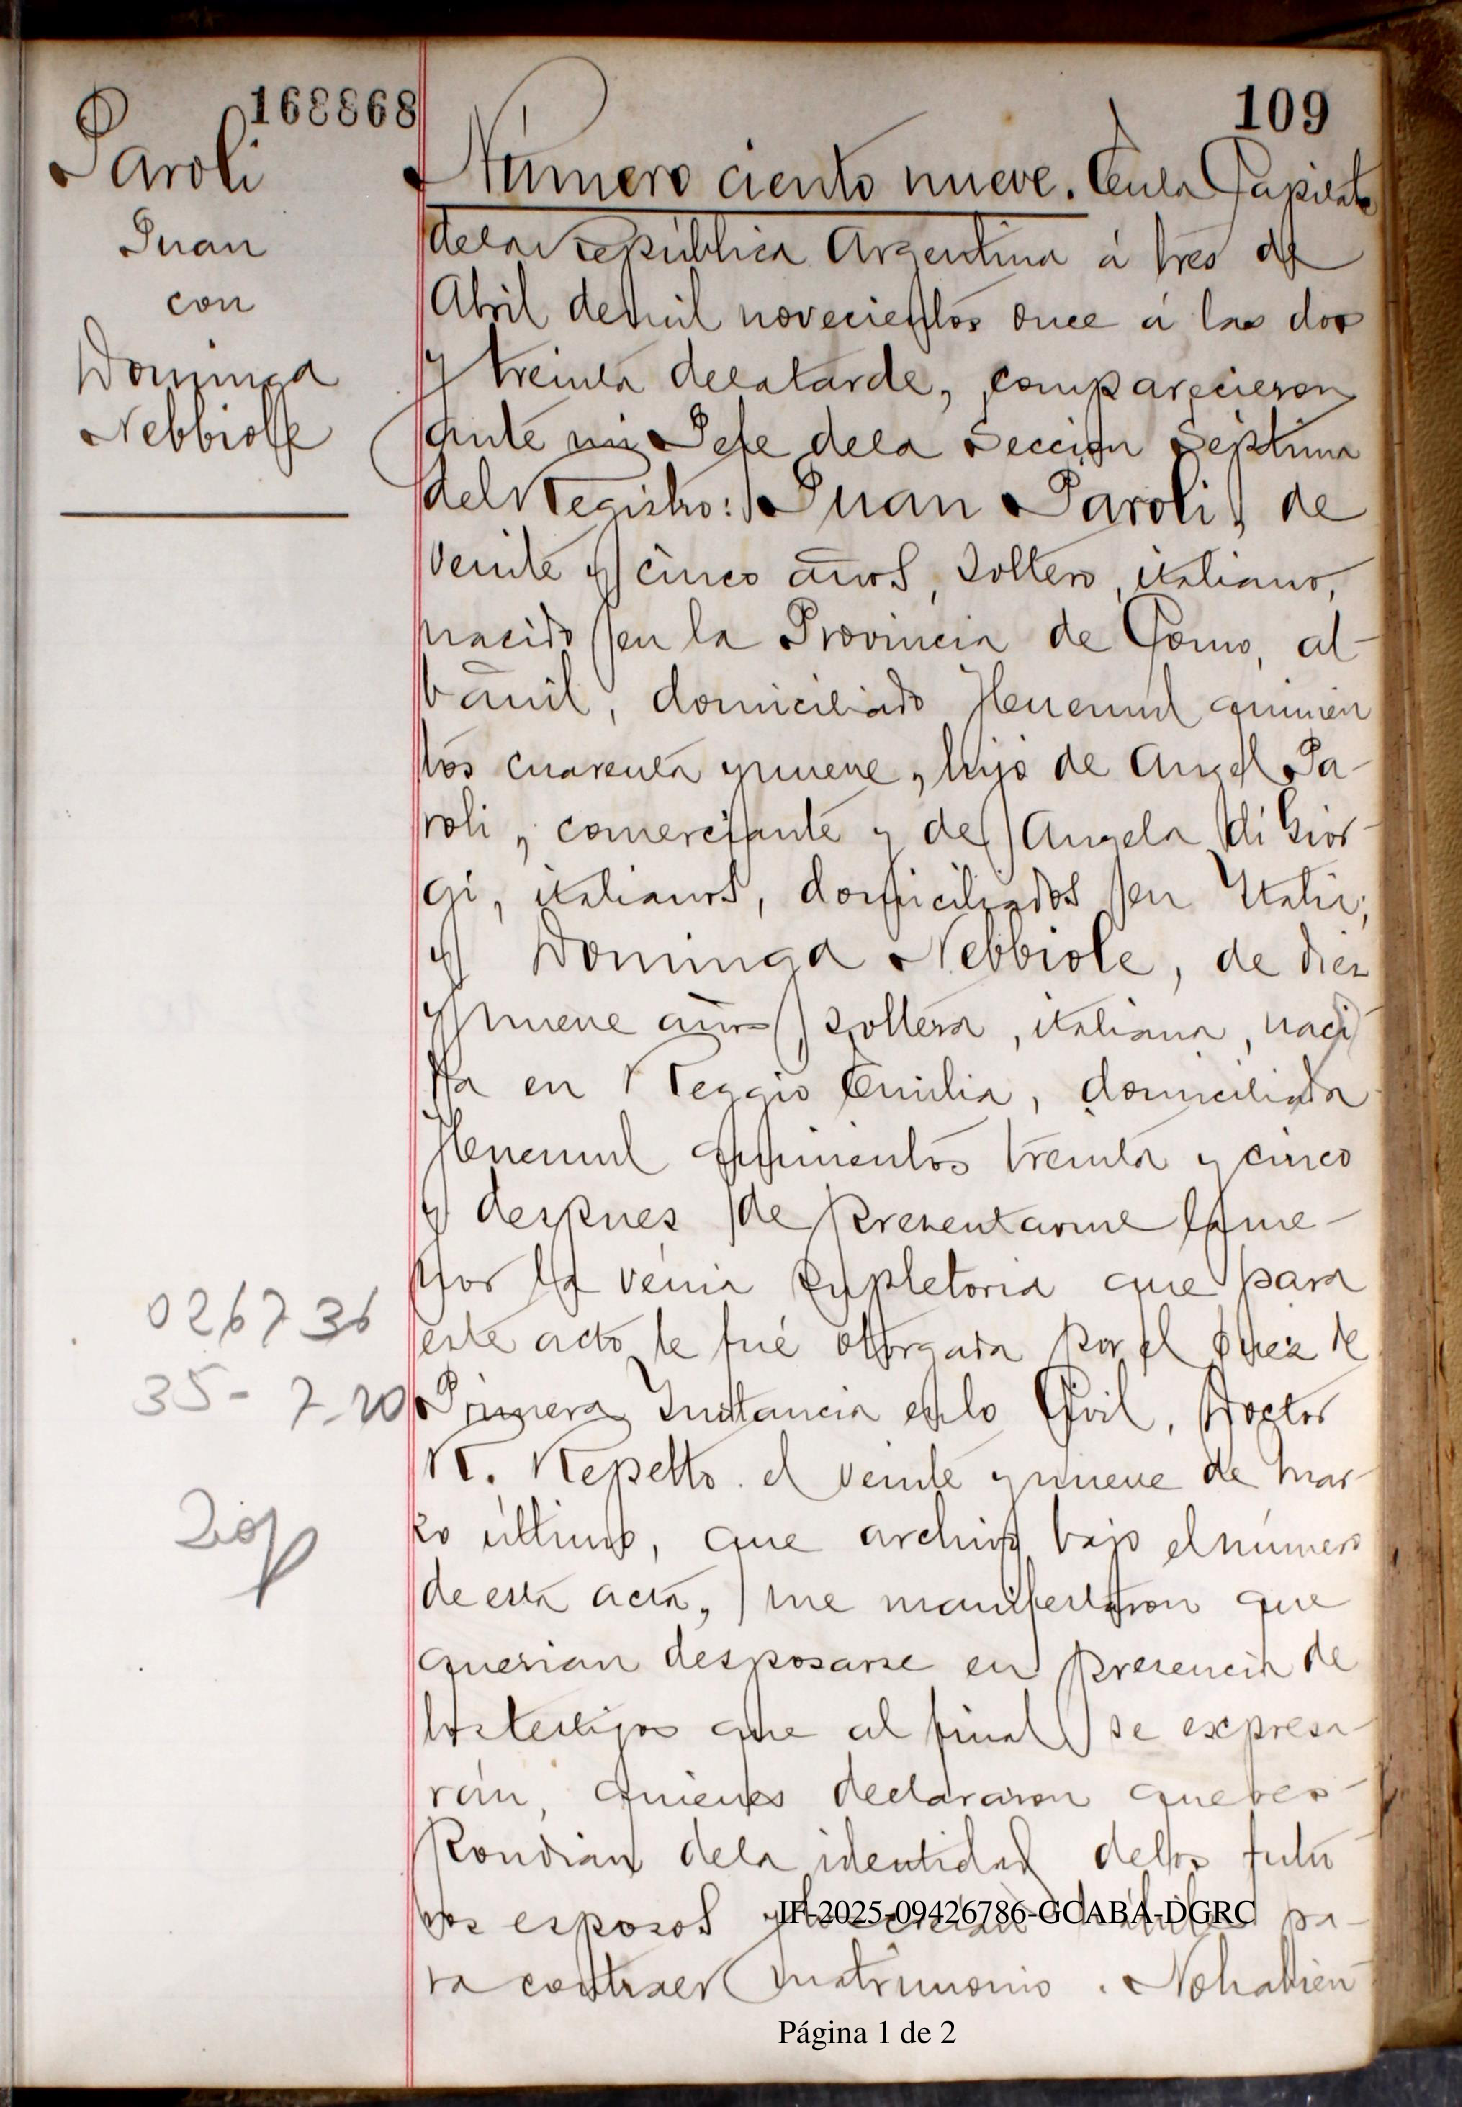 168868
109
Paroli
Juan
con
Dominga
Nebbiole
Número ciento nueve. En la Capital
de la República Argentina á tres de
Abril de mil novecientos once á las dos
y treinta de la tarde, comparecieron
ante mi Jefe de la Sección Séptima
del Registro: Juan Paroli, de
veinte y cinco años, soltero, italiano,
nacido en la Provincia de Como, al-
bañil, domiciliado quinien
tos cuarenta y nueve, hijo de Angel Pa-
roli, comerciante y de Angela di Gior-
gi, italianos, domiciliados en Italia;
y Dominga Nebbiole, de diez
y nueve años, soltera, italiana, naci
da en Reggio Emilia, domiciliada
quinientos treinta y cinco
y despues de presentarme la me-
nor la venia supletoria que para
este acto le fué otorgada por el Juez de
Primera Instancia en lo Civil, Doctor
R. Repetto el veinte y nueve de Mar-
zo último, que archivo bajo el número
de esta acta, me manifestaron que
querian desposarse en presencia de
los testigos que al final se expresa-
rán, quienes declararon que res-
pondian de la identidad de los futu
ros esposos y los creian hábiles pa-
ra contraer matrimonio. No habien-
026736
35- 7-20
IF-2025-09426786-GCABA-DGRC
Página 1 de 2